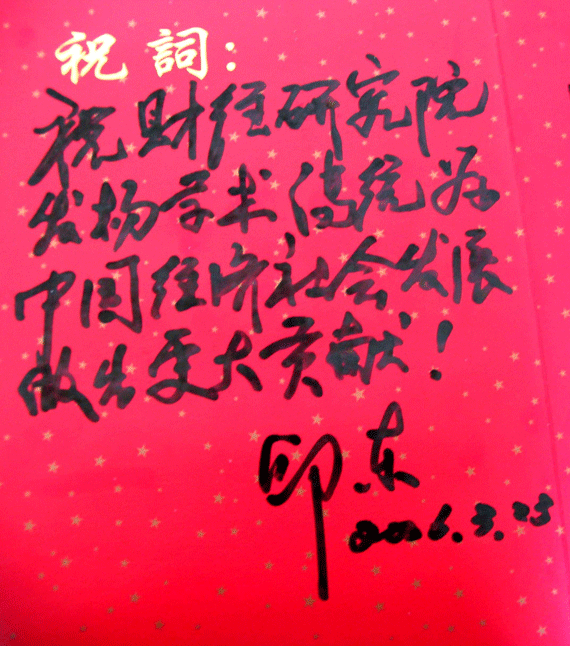 祝詞：
祝财经研究院
发扬学术传统为
中国经济社会发展
做出更大贡献！
邱东
2006.3.23